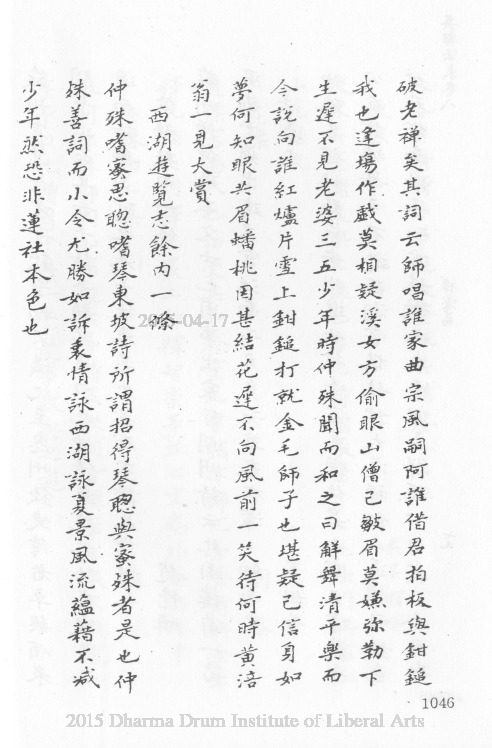 破老禅矣其詞云師唱誰家曲宗風嗣阿誰借君拍板與鉗鎚
我也逢場作戯莫相疑溪女方偷眼山僧已皺眉莫嫌弥勒下
生遲不見老婆三五少年時仲殊聞而和之曰解舞清平樂而
今說向誰紅爐片雪上鉗鎚打就金毛師子也堪疑已信身如
夢何知眼共眉蟠桃因甚結花遲不向風前一笑待何時黄涪
翁一見大賞
西湖遊覽志餘内一條
仲殊嗜蜜思聰嗜琴東坡詩所謂招得琴聰與蜜殊者是也仲
殊善詞而小令尤勝如訴衷情詠西湖詠夏景風流蘊藉不减
少年然恐非蓮社本色也
2015-04-17
1046
2015 Dharma Drum Institute of Liberal Arts